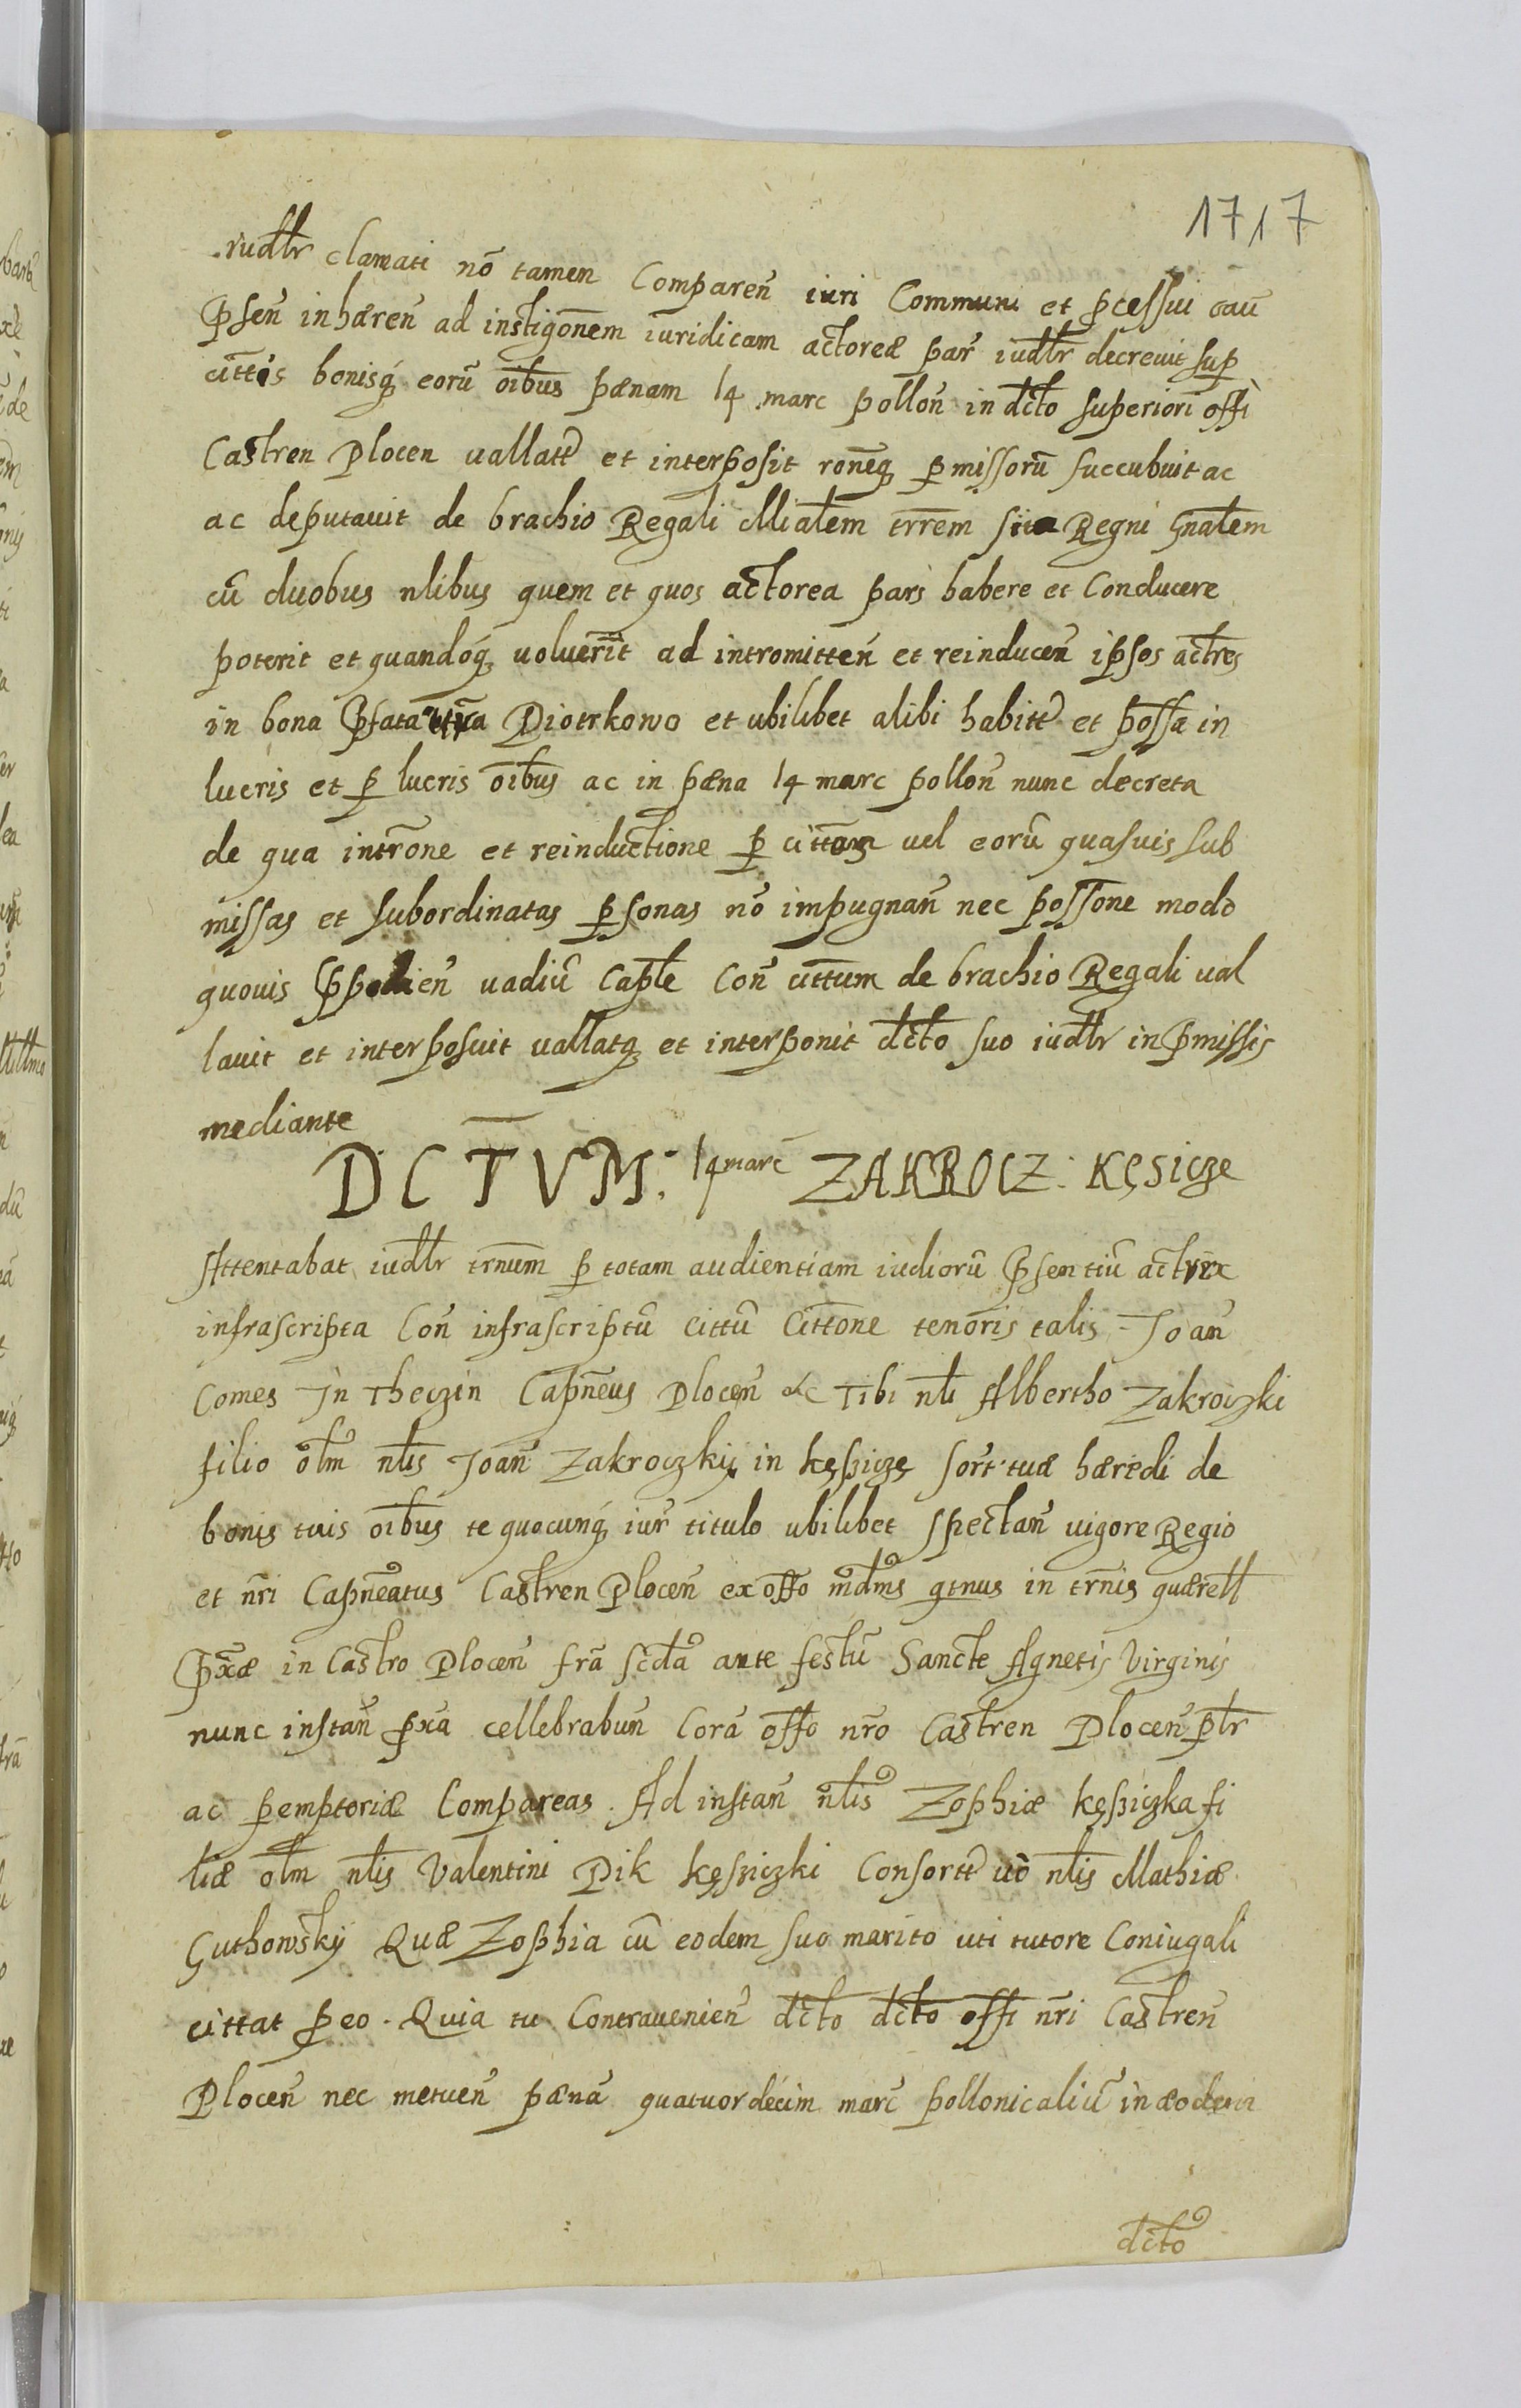 1717
iudłr clamati nō tamen Comparen̄ iuri Communi et pcessui cau̅
Psen̄ inhæren̄ ad instigōnem iuridicam actoreæ par̄ iudłr decreuit sup
cittis bonisq́ eorū oībus pænam 14 marc pollon̄ in dcto superiori offi
Castren Plocen uallatt̄ et interposit ronēq pmissorū succubuit ac
ac deputauit de brachio Regali Miałem trrēm siue Regni Gnałem
cū duobus nlibus quem et quos actorea pars habere et Conducere
poterit et quandoq́ uoluerīt ad intromitten̄ et reinducen̄ ipsos actres
in bona Pfata Piotrkowo et ubilibet alibi habitt̄ et possa in
lucris et p lucris oībus ac in pæna 14 marc pollon̄ nunc decreta
de qua intrōne et reinductione p cittos uel eorū quasuis sub
missas et subordinatas psonas nō impugnan̄ nec possōne modo
quouis Ppedien̄ uadiū Capłe Con̄ cittum de brachio Regali ual
lauit et interposuit uallatq et interponit dcto suo iudłr in pmissis
mediante
DCTVM: 14 marc̄ ZAKROCZ: KĘSICZE
Attentabat iudłr trn̄um p totam audientiam iudiorū Psentiū actrix
infrascripta Con̄ infrascriptū Cittū Cittōne tenōris talis Joan̄
Comes In Theczin Capn̄eus Plocen̄ &c Tibi nłi Albertho Zakroczki
filio ołm nłis Joan̄ Zakroczkij in kęsicze sort tuæ hæredi de
bonis tuis oībus te quocunq́ iur̄ titulo ubilibet spectan̄ uigore Regio
et nr̄i Capn̄eatus Castren Plocen̄ ex offo mdms qtnus in trn̄is quærell
Pxæ in Castro Plocen̄ frā scda ante festū Sancte Agnetis Virginis
nunc instan̄ pxa cellebrabun̄ Corā offo nr̄o Castren Plocen̄ płr
ac pemptoriæ Compareas. Ad instan̄ nłis Zophiæ kęsiczka fi
liæ ołm nłis Valentini Pik kęsiczki Consortt̄ uō nłis Mathiæ
Guthowskij Quæ Zophia cū eodem suo marito uti tutore Coniugali
cittat peo. Quia tu Contrauenien̄ dcto dcto offi nr̄i Castren̄
Plocen̄ nec metuen̄ pænā quatuordecim marc̄ pollonicaliū in æodem
dcto